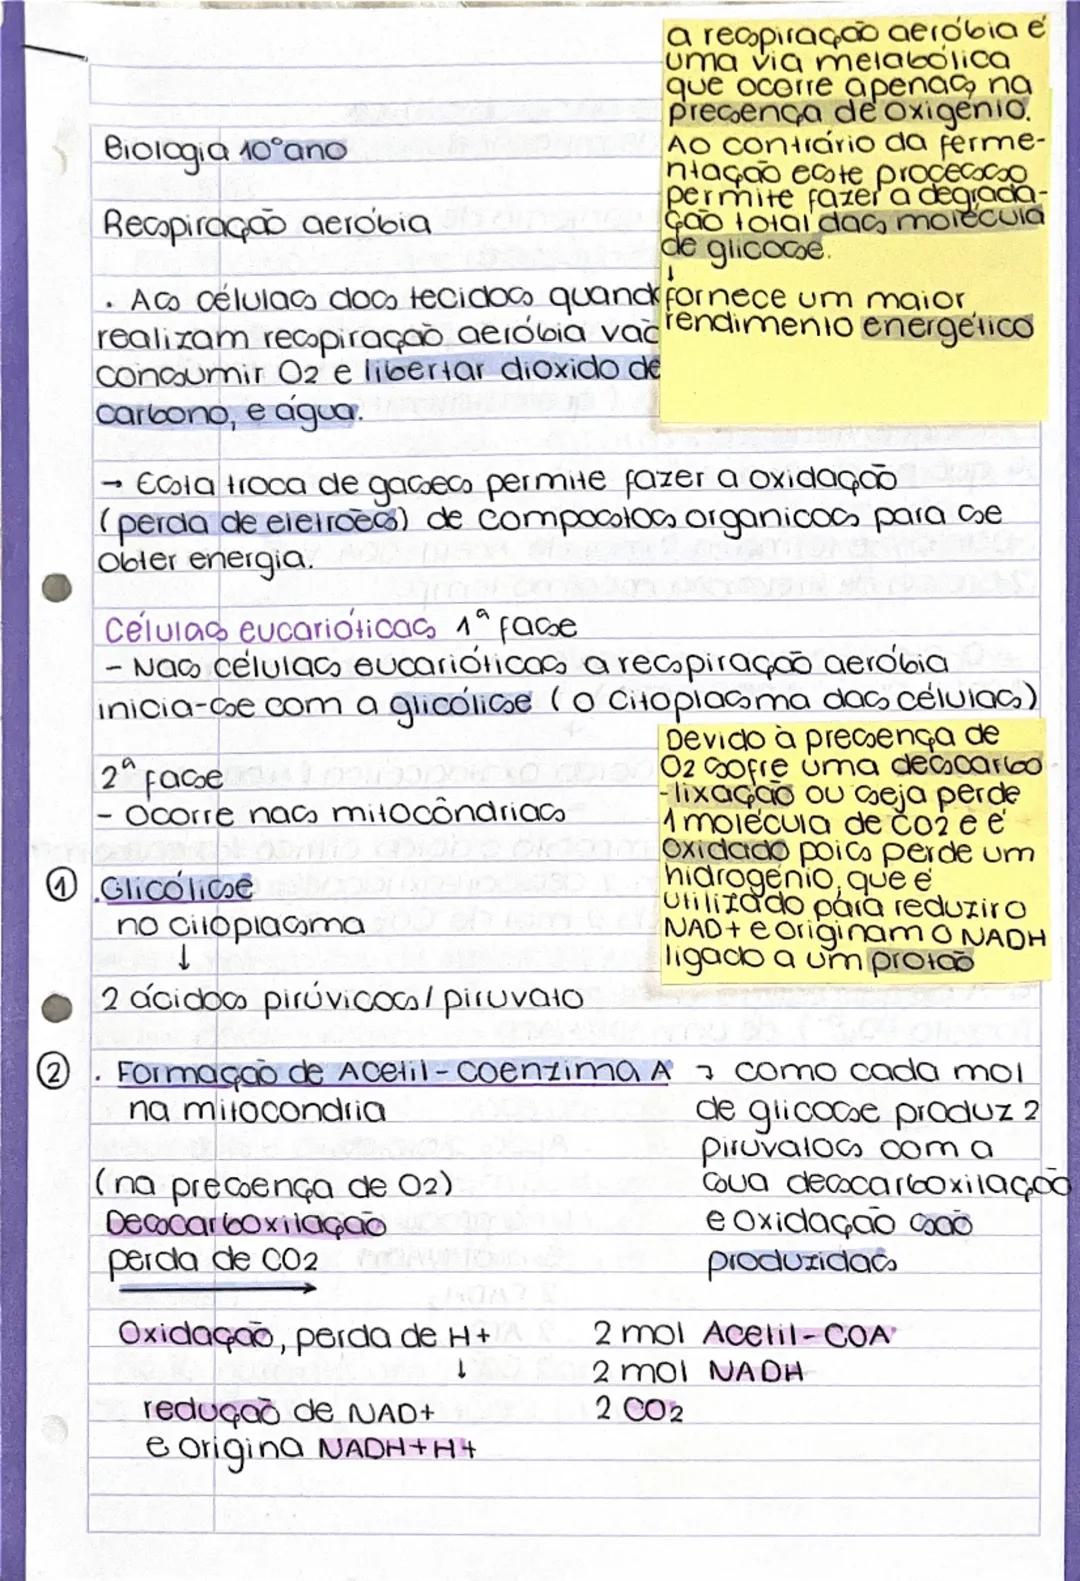 a respiração aeróbia é
uma via metabólica
que ocorre apenas na
presença de oxigénio.
Ao contrário da ferme-
ntação este processo
permite fazer a degrada-
ção total das molécula
de glicose.
↓
fornece um maior
rendimento energético
Biologia 10º ano
Respiração aeróbia
. As células dos tecidos quand
realizam respiração aeróbia vão
consumir O2 e libertar dioxido de
carbono, e água.
→ Esta troca de gases permite fazer a oxidação
(perda de eletrões) de compostos organicos para se
obter energia.
Células eucarióticas 1ª fase
- Nas células eucarióticas a respiração aeróbia
inicia-se com a glicólise (o citoplasma das células)
2ª fase
- Ocorre nas mitocôndrias
Devido à presença de
O2 sofre uma descarbo
-lixação ou seja perde
1 molécula de CO2 e é
oxidado pois perde um
hidrogénio, que é
utilizado para reduzir o
NAD+ e originam o NADH
ligado a um protão
① .Glicólise
no citoplasma
↓
2 ácidos pirúvicos / piruvato
② . Formação de Acetil-coenzima A
na mitocondria
(na presença de O2)
Descarboxilação
perda de CO2
→ como cada mol
de glicose produz 2
piruvatos com a
sua descarboxilação
e oxidação são
produzidas
Oxidação, perda de H+
↓
redução de NAD+
e origina NADH+H+
2 mol Acetil-COA
2 mol NADH
2 CO2